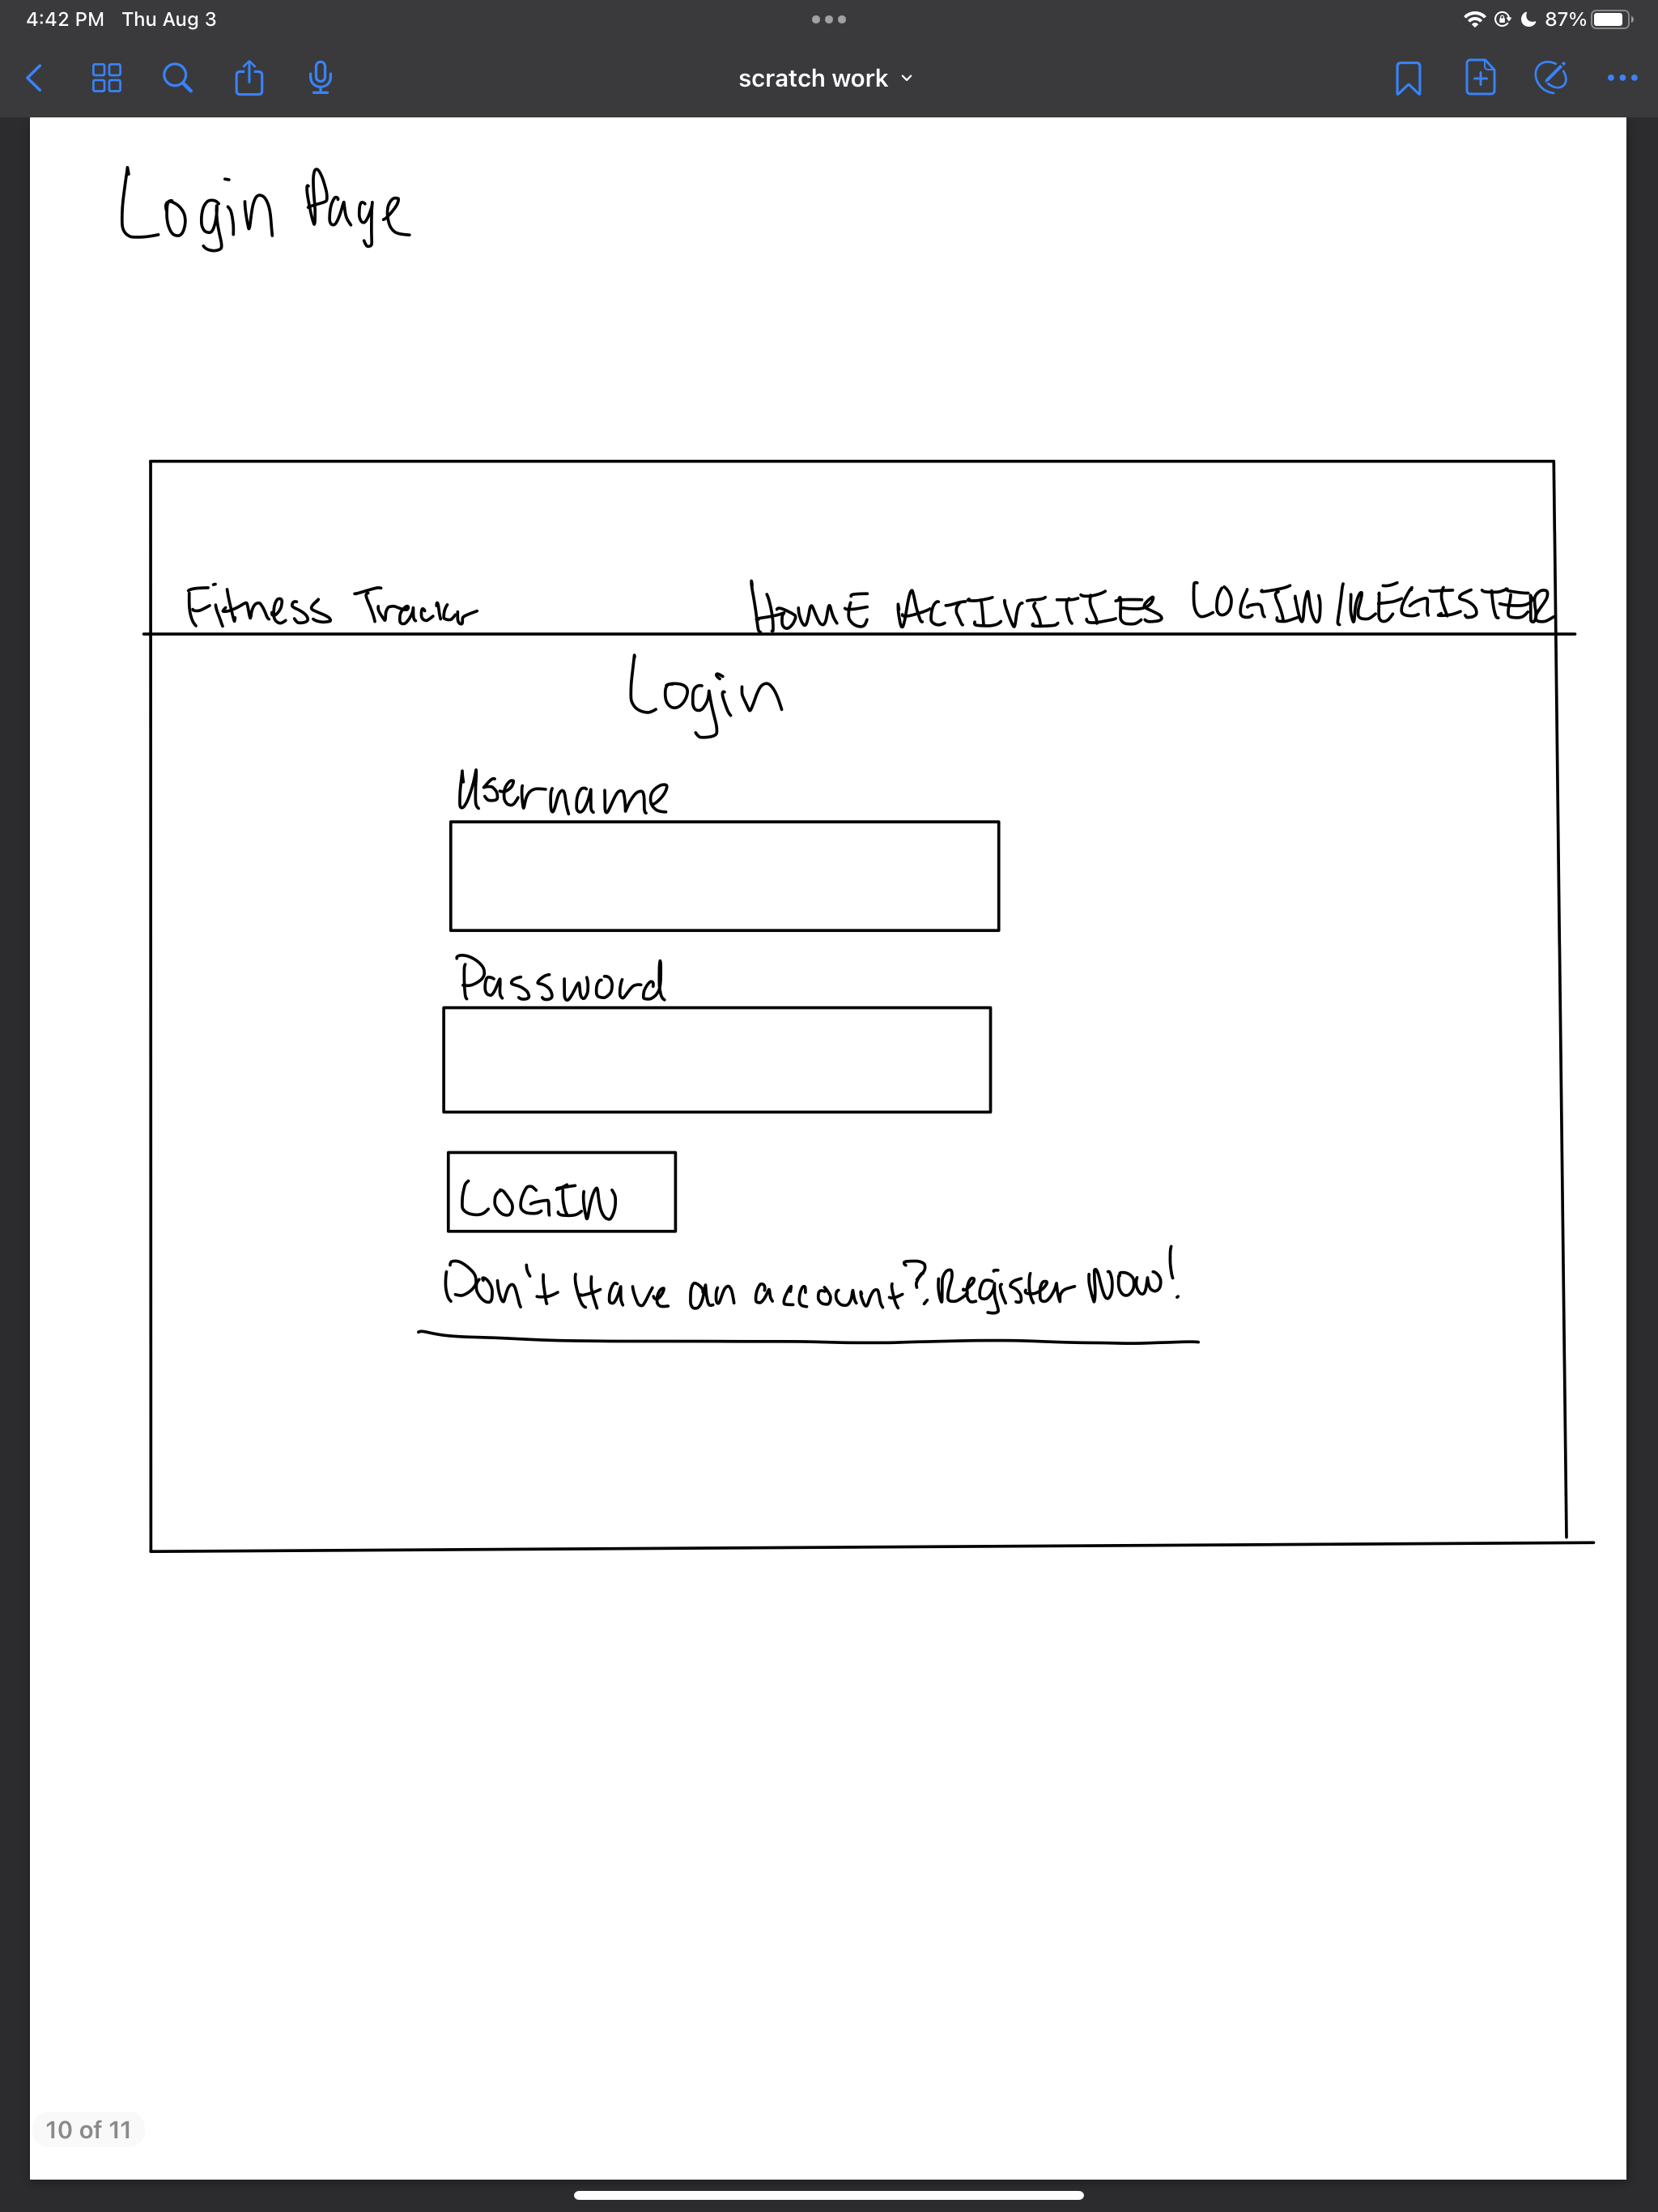 4:42 PM Thu Aug 3
87%
scratch work
Login Page
Fitness Tracker HOME ACTIVITIES LOGIN/REGISTER
Login
Username
Password
LOGIN
Don't Have an account? Register Now!
10 of 11